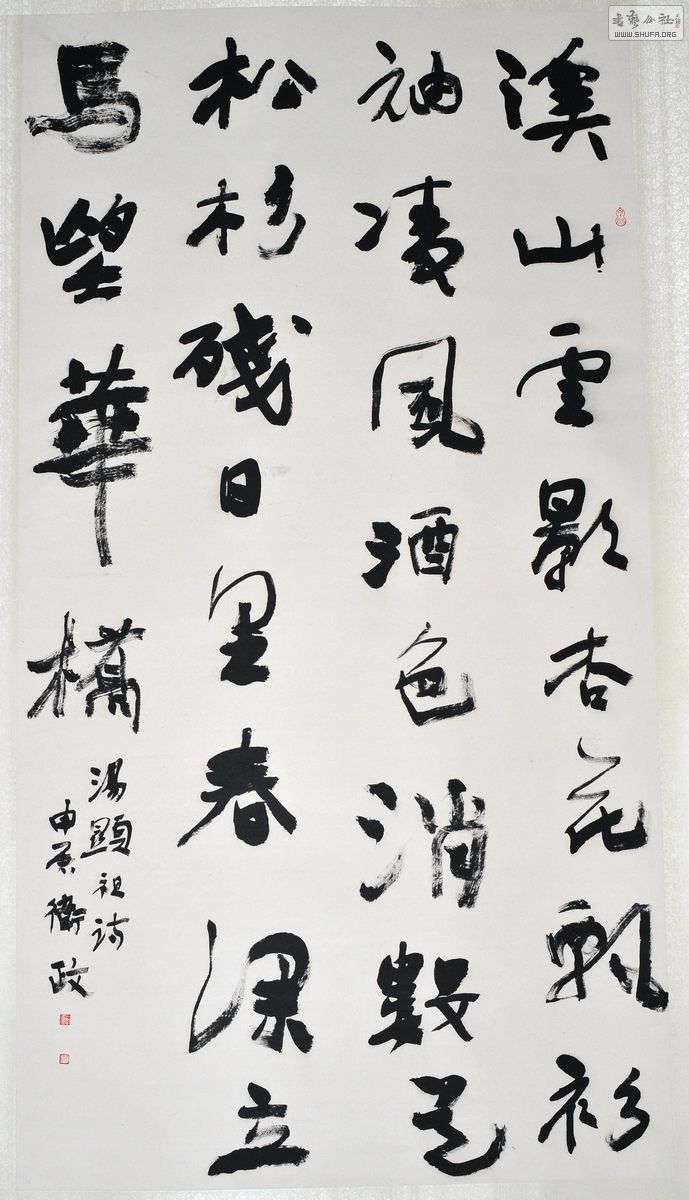 溪山雲影杏花飄衫
袖凌風酒色消數
松杉殘日里春深立
馬望華橋
湯顯祖詩
衛政
書藝公社
WWW.SHUFA.ORG